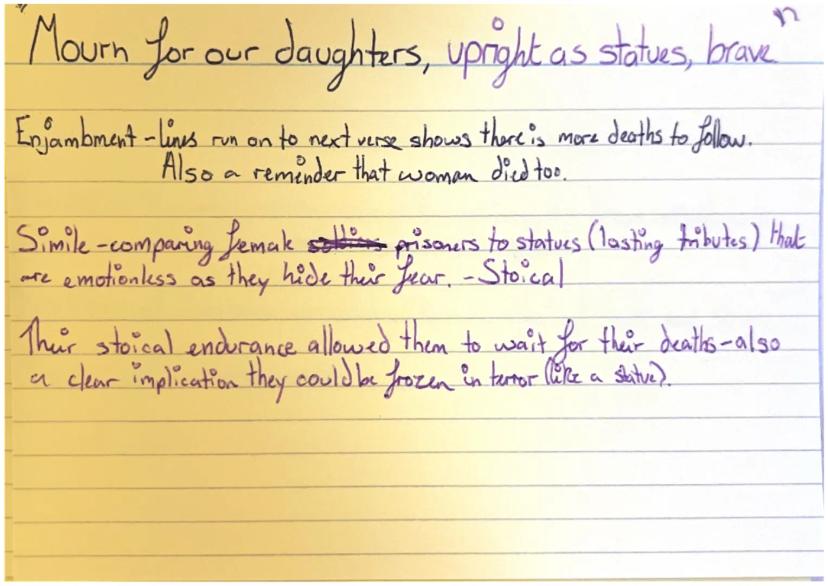 "Mourn for our daughters, upright as statues, brave"
Enjambment - lines run on to next verse shows there is more deaths to follow.
Also a reminder that woman died too.
Simile - comparing female prisoners to statues (lasting tributes) that
are emotionless as they hide their fear. - Stoical
Their stoical endurance allowed them to wait for their deaths - also
a clear implication they could be frozen in terror (like a statue).